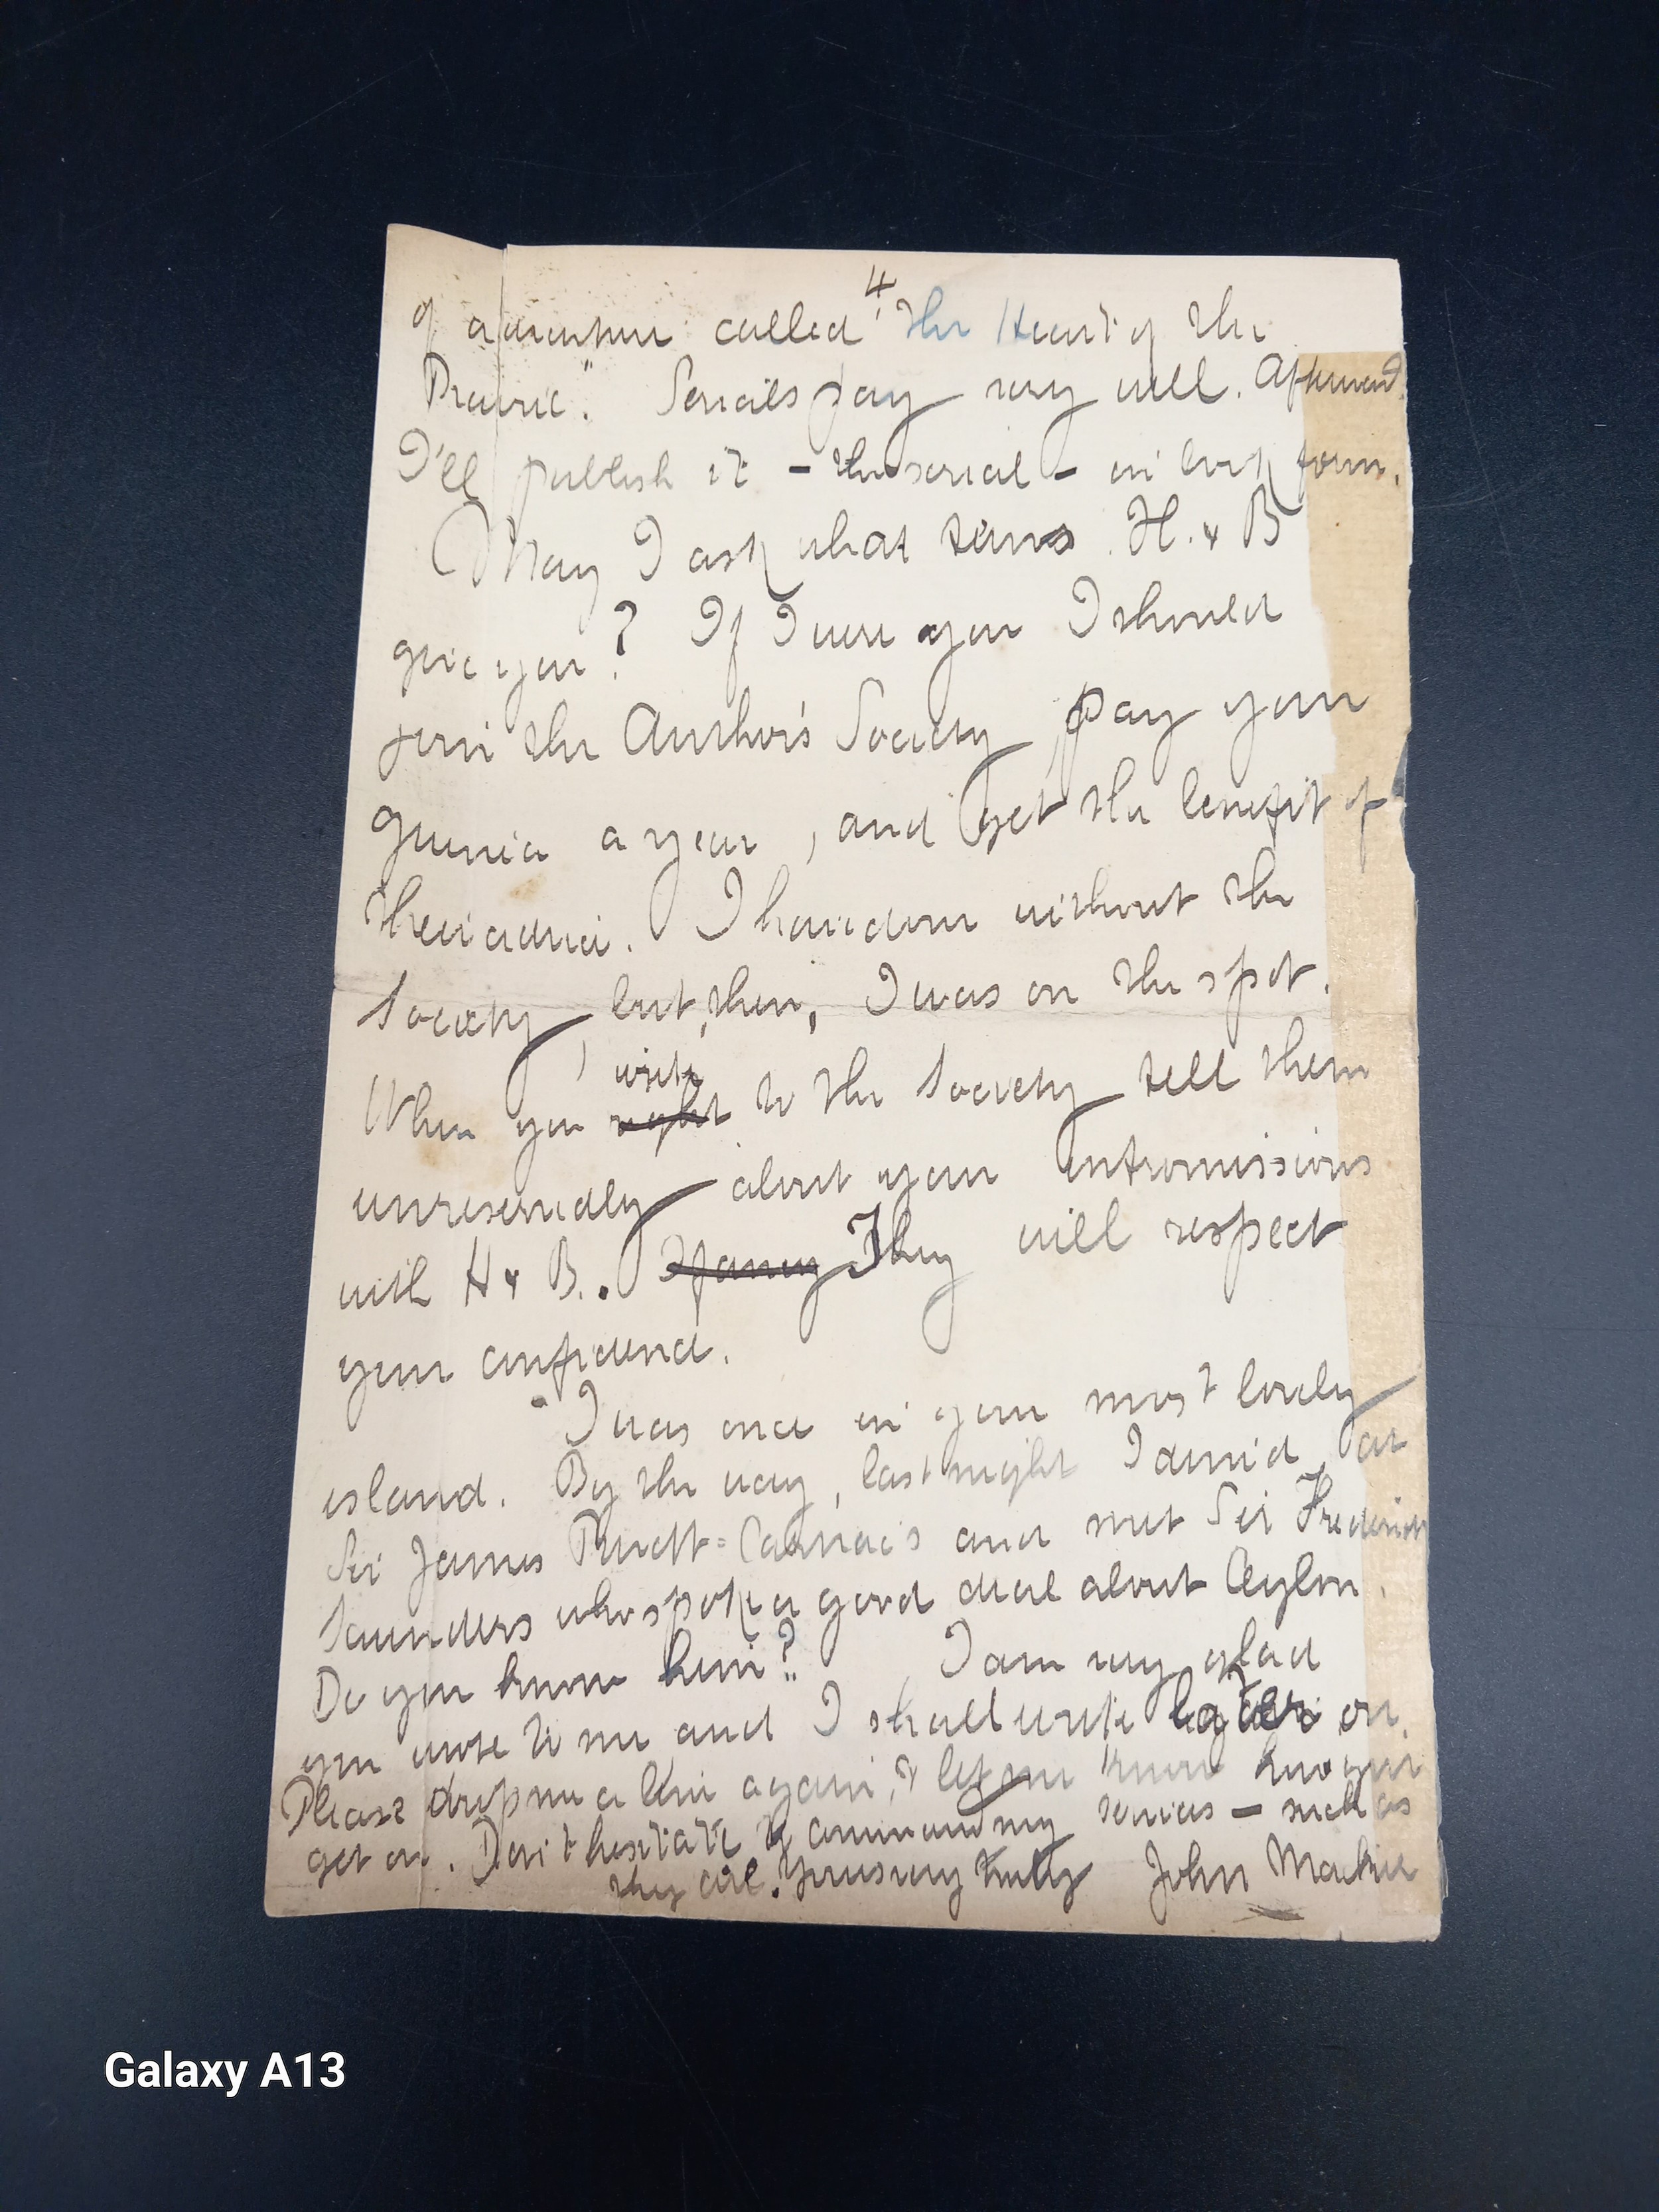 4
of adventure called "The Heart of the
Prairie." Serials pay very well. Afterward
I'll publish it - the serial - in book form.
May I ask what terms H. & B
give you? If I were you I should
join the Author's Society, pay your
guinea a year, and get the benefit of
their advice. I have done without the
Society, but, then, I was on the spot.
write
When you right to the Society tell them
unreservedly about your intromissions
with H & B. I fancy They will respect
your confidence.
I was once in your most lovely
island. By the way, last night I dined at
Sir James Carnac's and met Sir Frederick
Saunders who spoke a good deal about Ceylon.
Do you know him? I am very glad
you wrote to me and I shall write later on.
Please drop me a line again, & let me know how you
get on. Don't hesitate to command my services - such as
they are. Yours very truly John Mackie
Galaxy A13